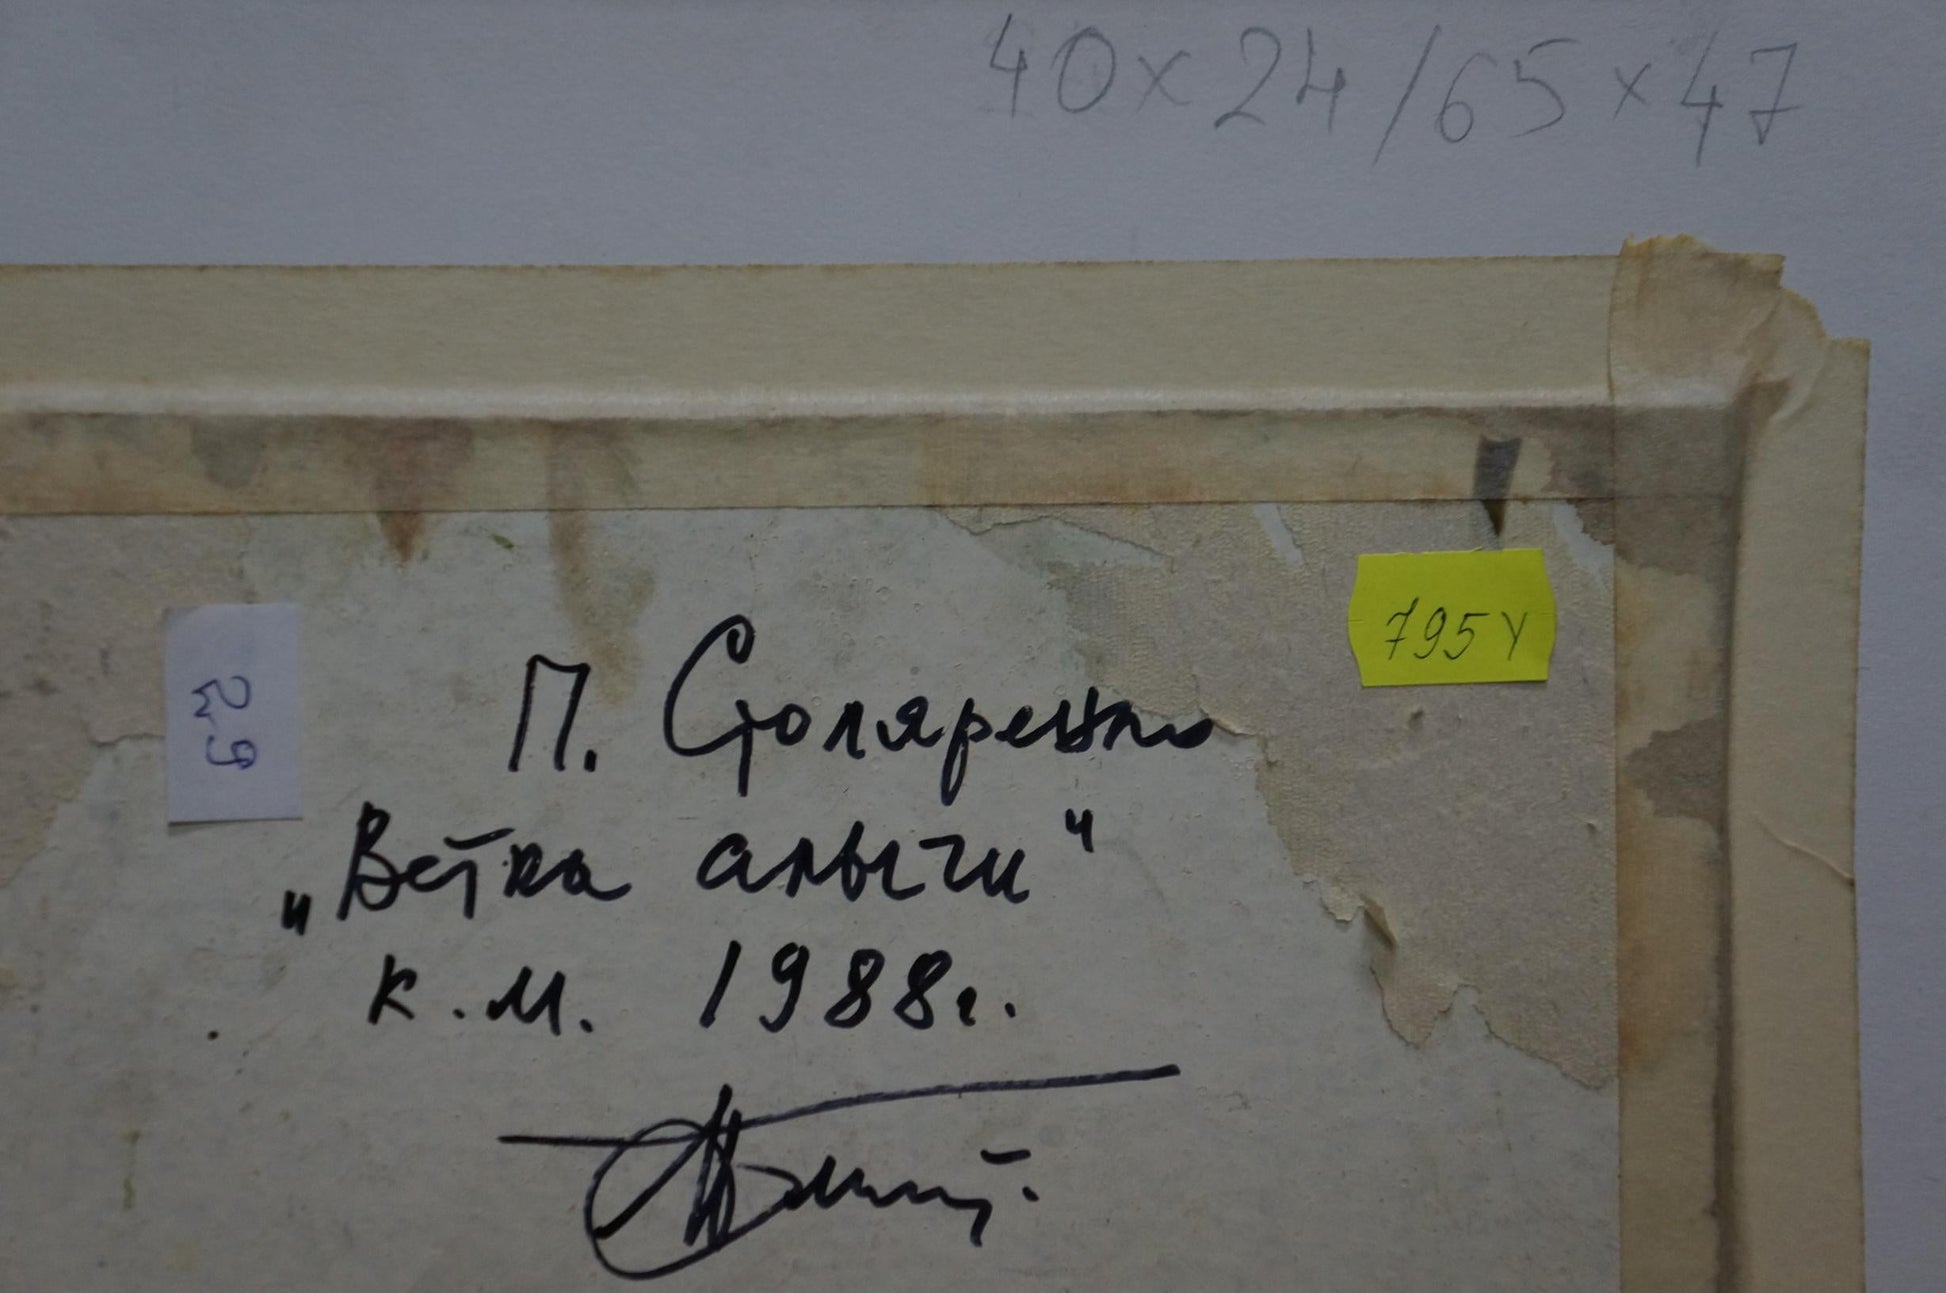 40×24/65×47
795Y
29
П. Столяренко
„Ветка алычи"
к.м. 1988г.